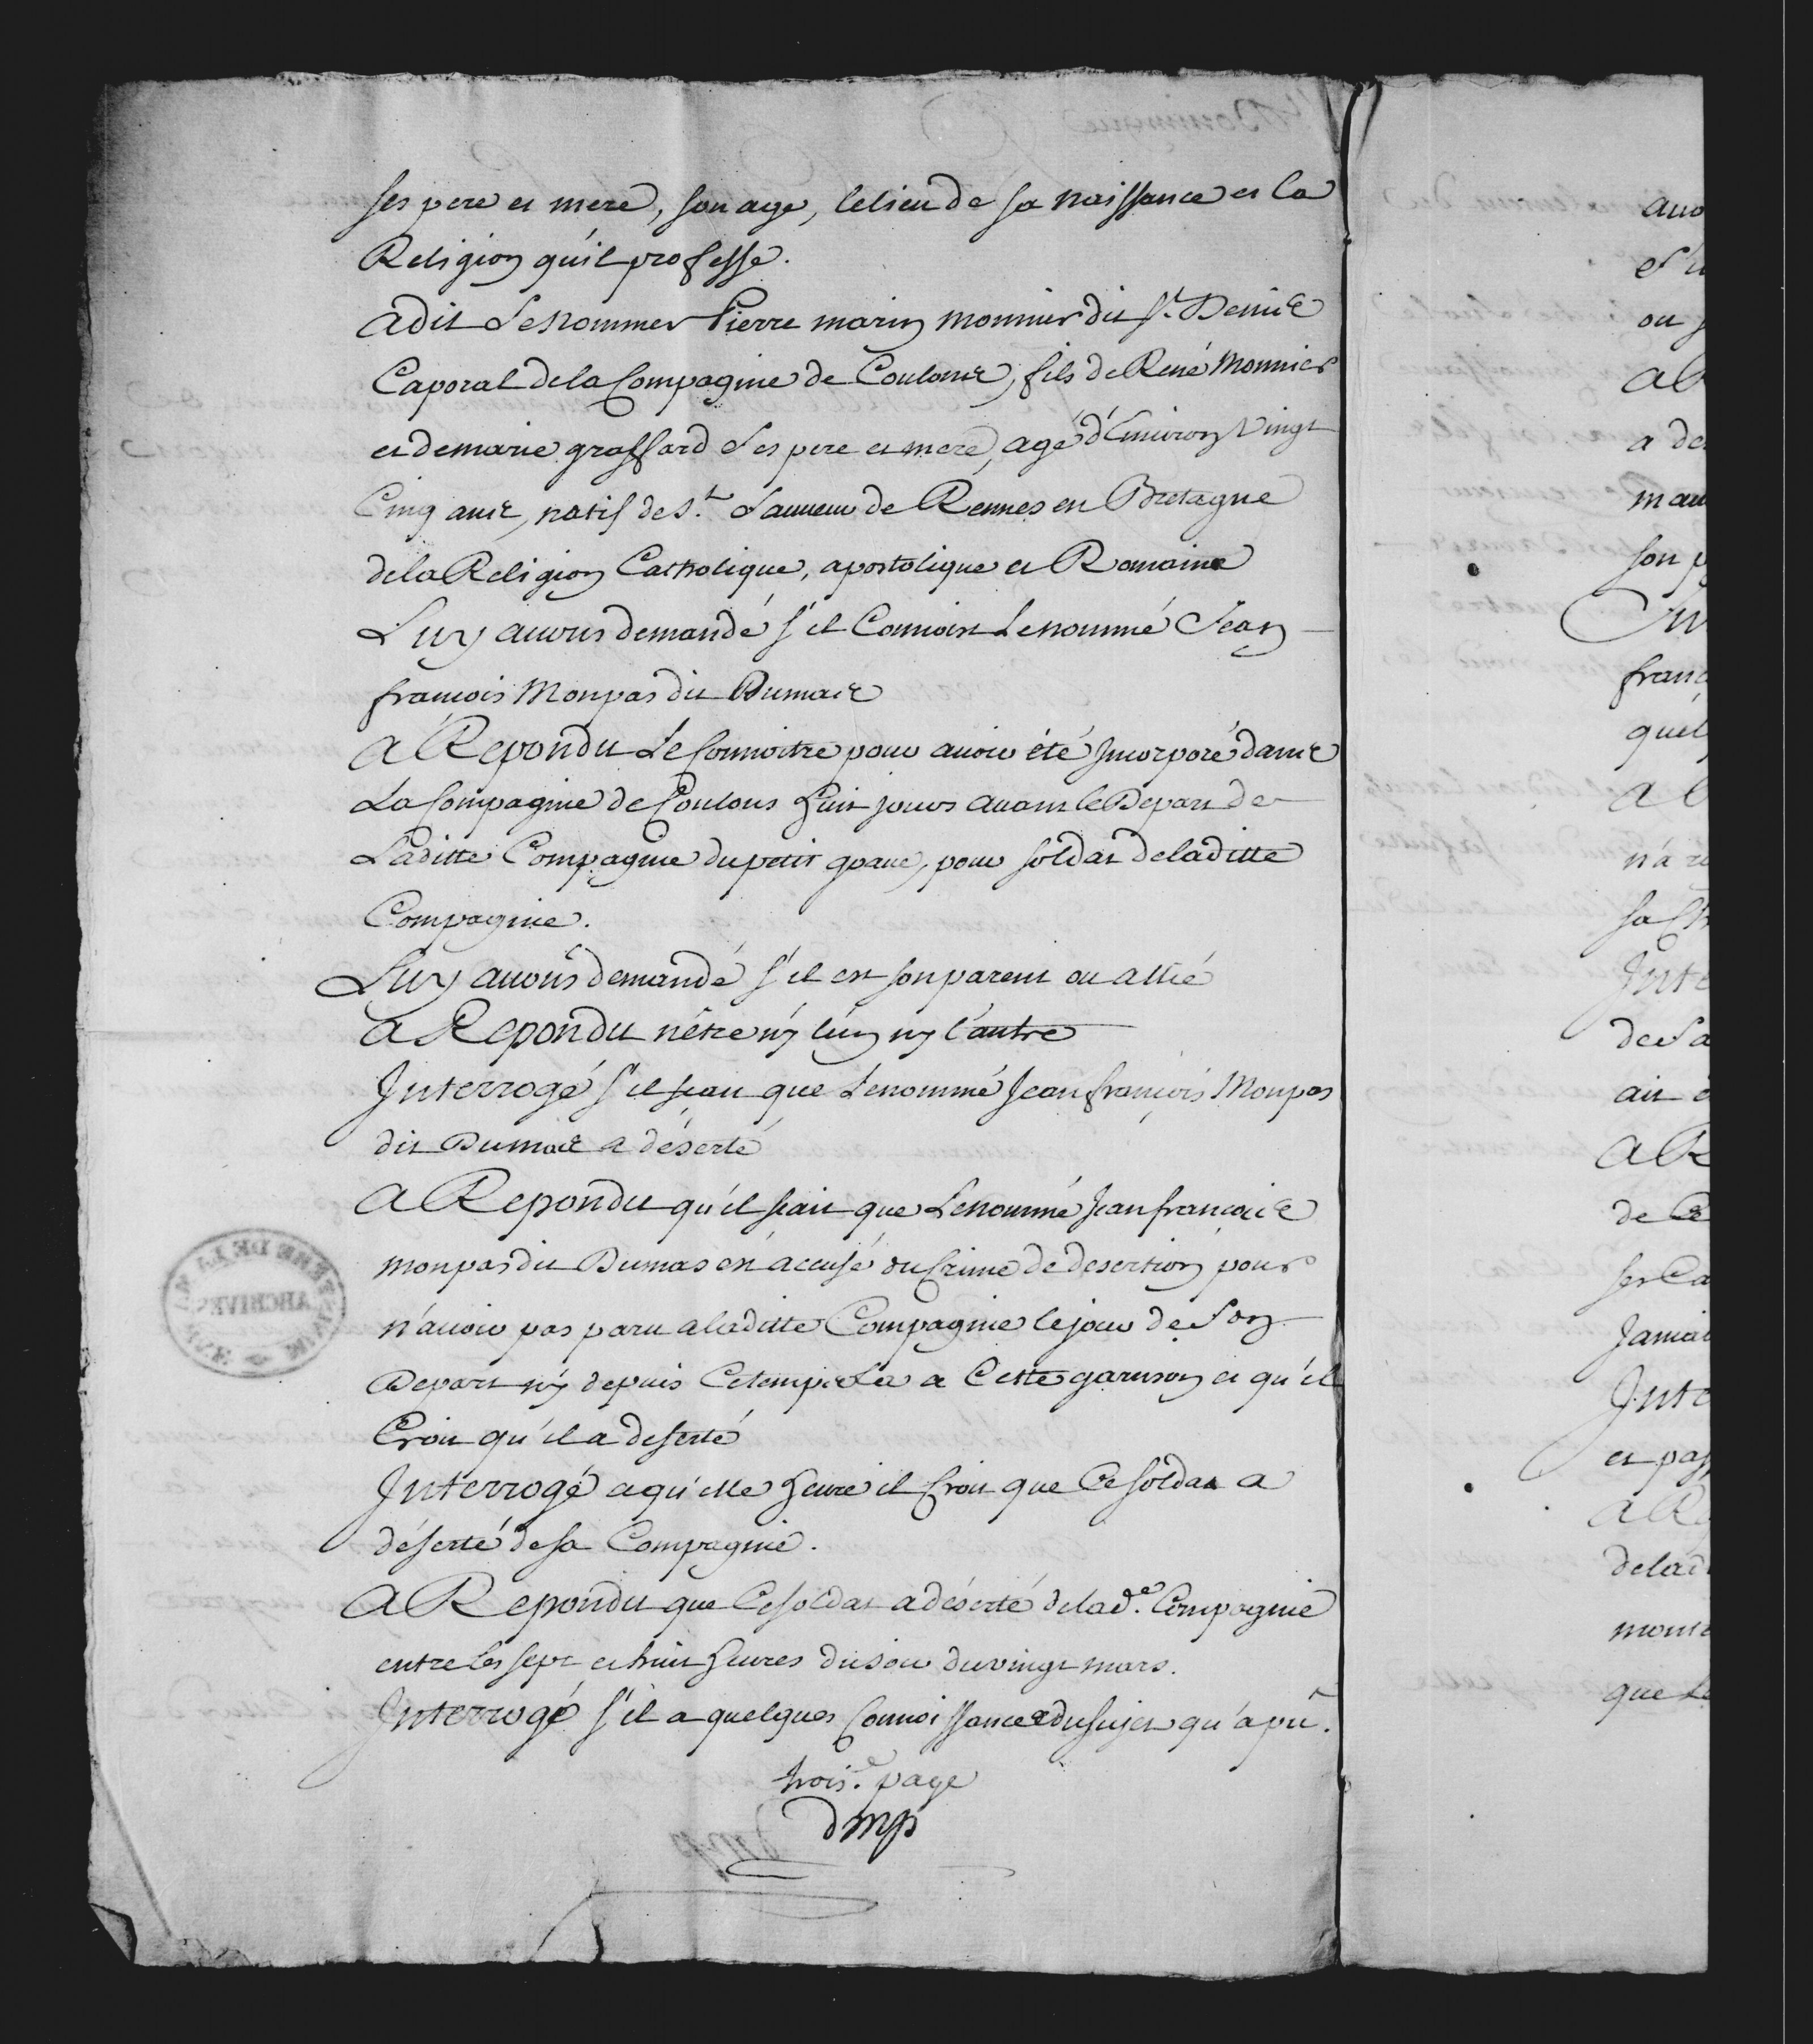 ses pere et mere, son age, le lieu de sa naissance et la
Religion qu'il professe.
a dit Se nommer Pierre marin monnier dit St. Denis
Caporal de la Compagnie de Coulons, fils de René Monnier
et de marie graffard Ses pere et mere, agé d'Environ Vingt
Cinq ans, natif de St. Sauveur de Rennes en Bretagne
de la Religion Catholique, apostolique et Romaine
Luy avons demandé s'il Connoist Le nommé Jean
francois Monpas dit Dumas
a Repondu Le Connoitre pour avoir été Jncorporé dans
La Compagnie de Coulons huit jours avant le Depart de
Laditte Compagnie du petit goave, pour soldat de laditte
Compagnie.
Luy avons demandé s'il est son parent ou allié
a Repondu n'être ny l'un ny l'autre
Jnterrogé s'il scait que Le nommé Jean françois Monpas
dit Dumas a déserté
a Repondu qu'il scait que Le nommé Jean francois
monpas dit Dumas est accusé du Crime de desertion pour
n'avoir pas paru a laditte Compagnie le jour de Son
Depart ny depuis Ce temps La a Cette garnison et qu'il
Croit qu'il a deserté
Jnterrogé a qu'elle heure il Croit que Ce soldat a
déserté de sa Compagnie.
a Repondu que Ce soldat a déserté de lad.e Compagnie
entre les sept et huit heures du soir du vingt mars.
Jnterrogé s'il a quelques Connoissances du sujet qu'a pu.
trois.e page
dmp
ARCHIVES
avo
ou
a de
mau
son p
franc
quel
n'a
Jnte
de Sa
ait
a R
de Ce
ses Ca
Jamai
Jnte
et pas
de lad
que Le